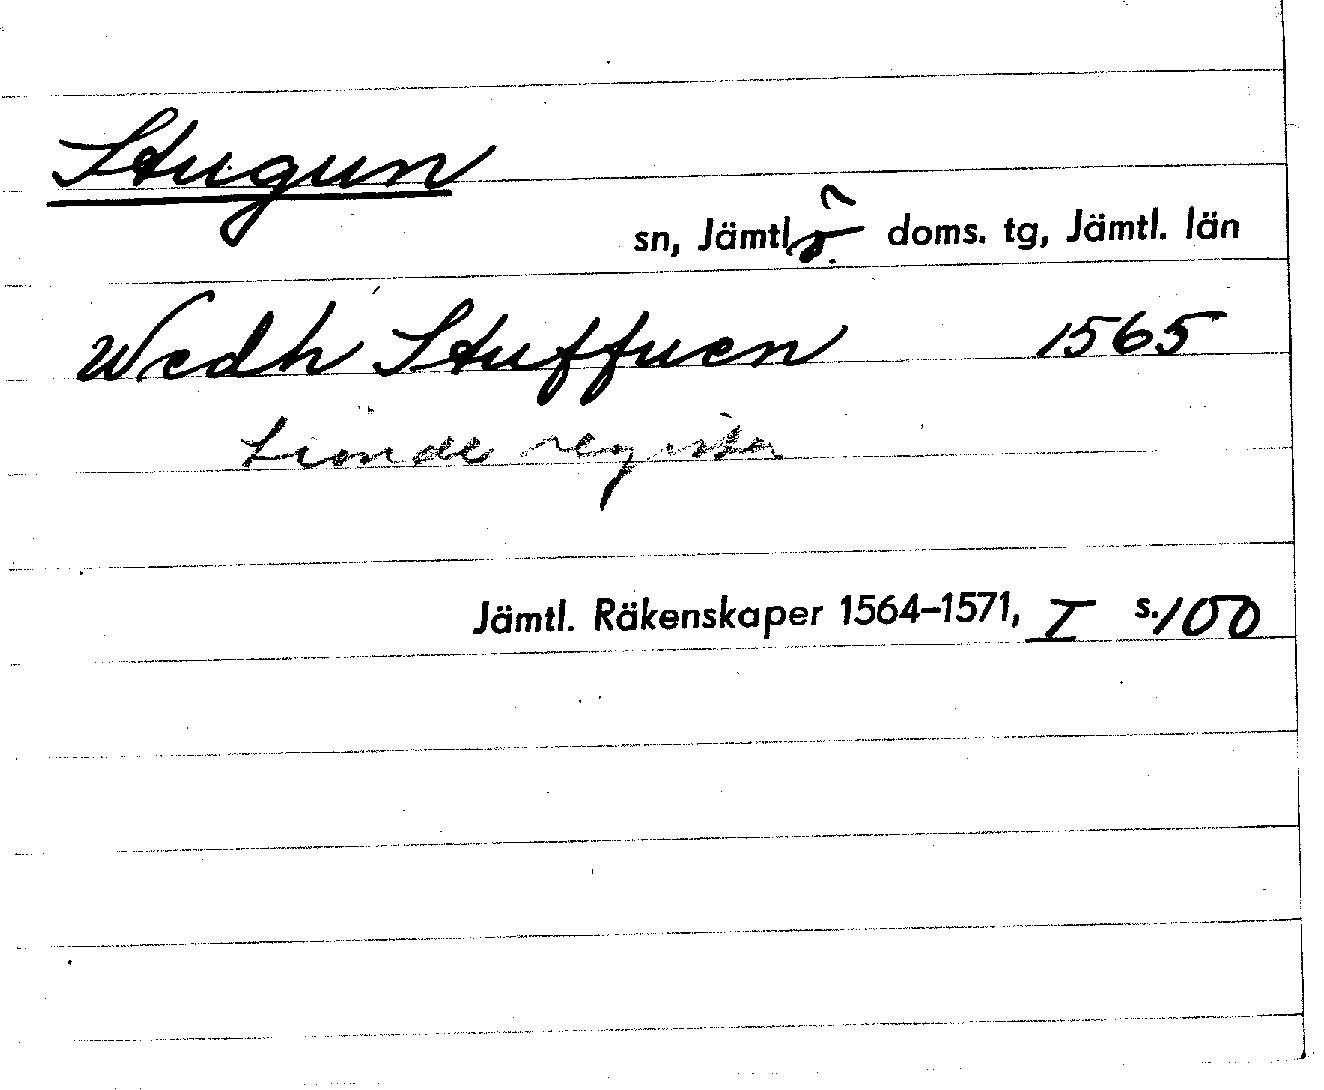 Stugun
sn, Jämtl. ö. doms. tg, Jämtl. län
Wedh Stuffuen 1565
Tionde register
Jämtl. Räkenskaper 1564-1571, I s. 100